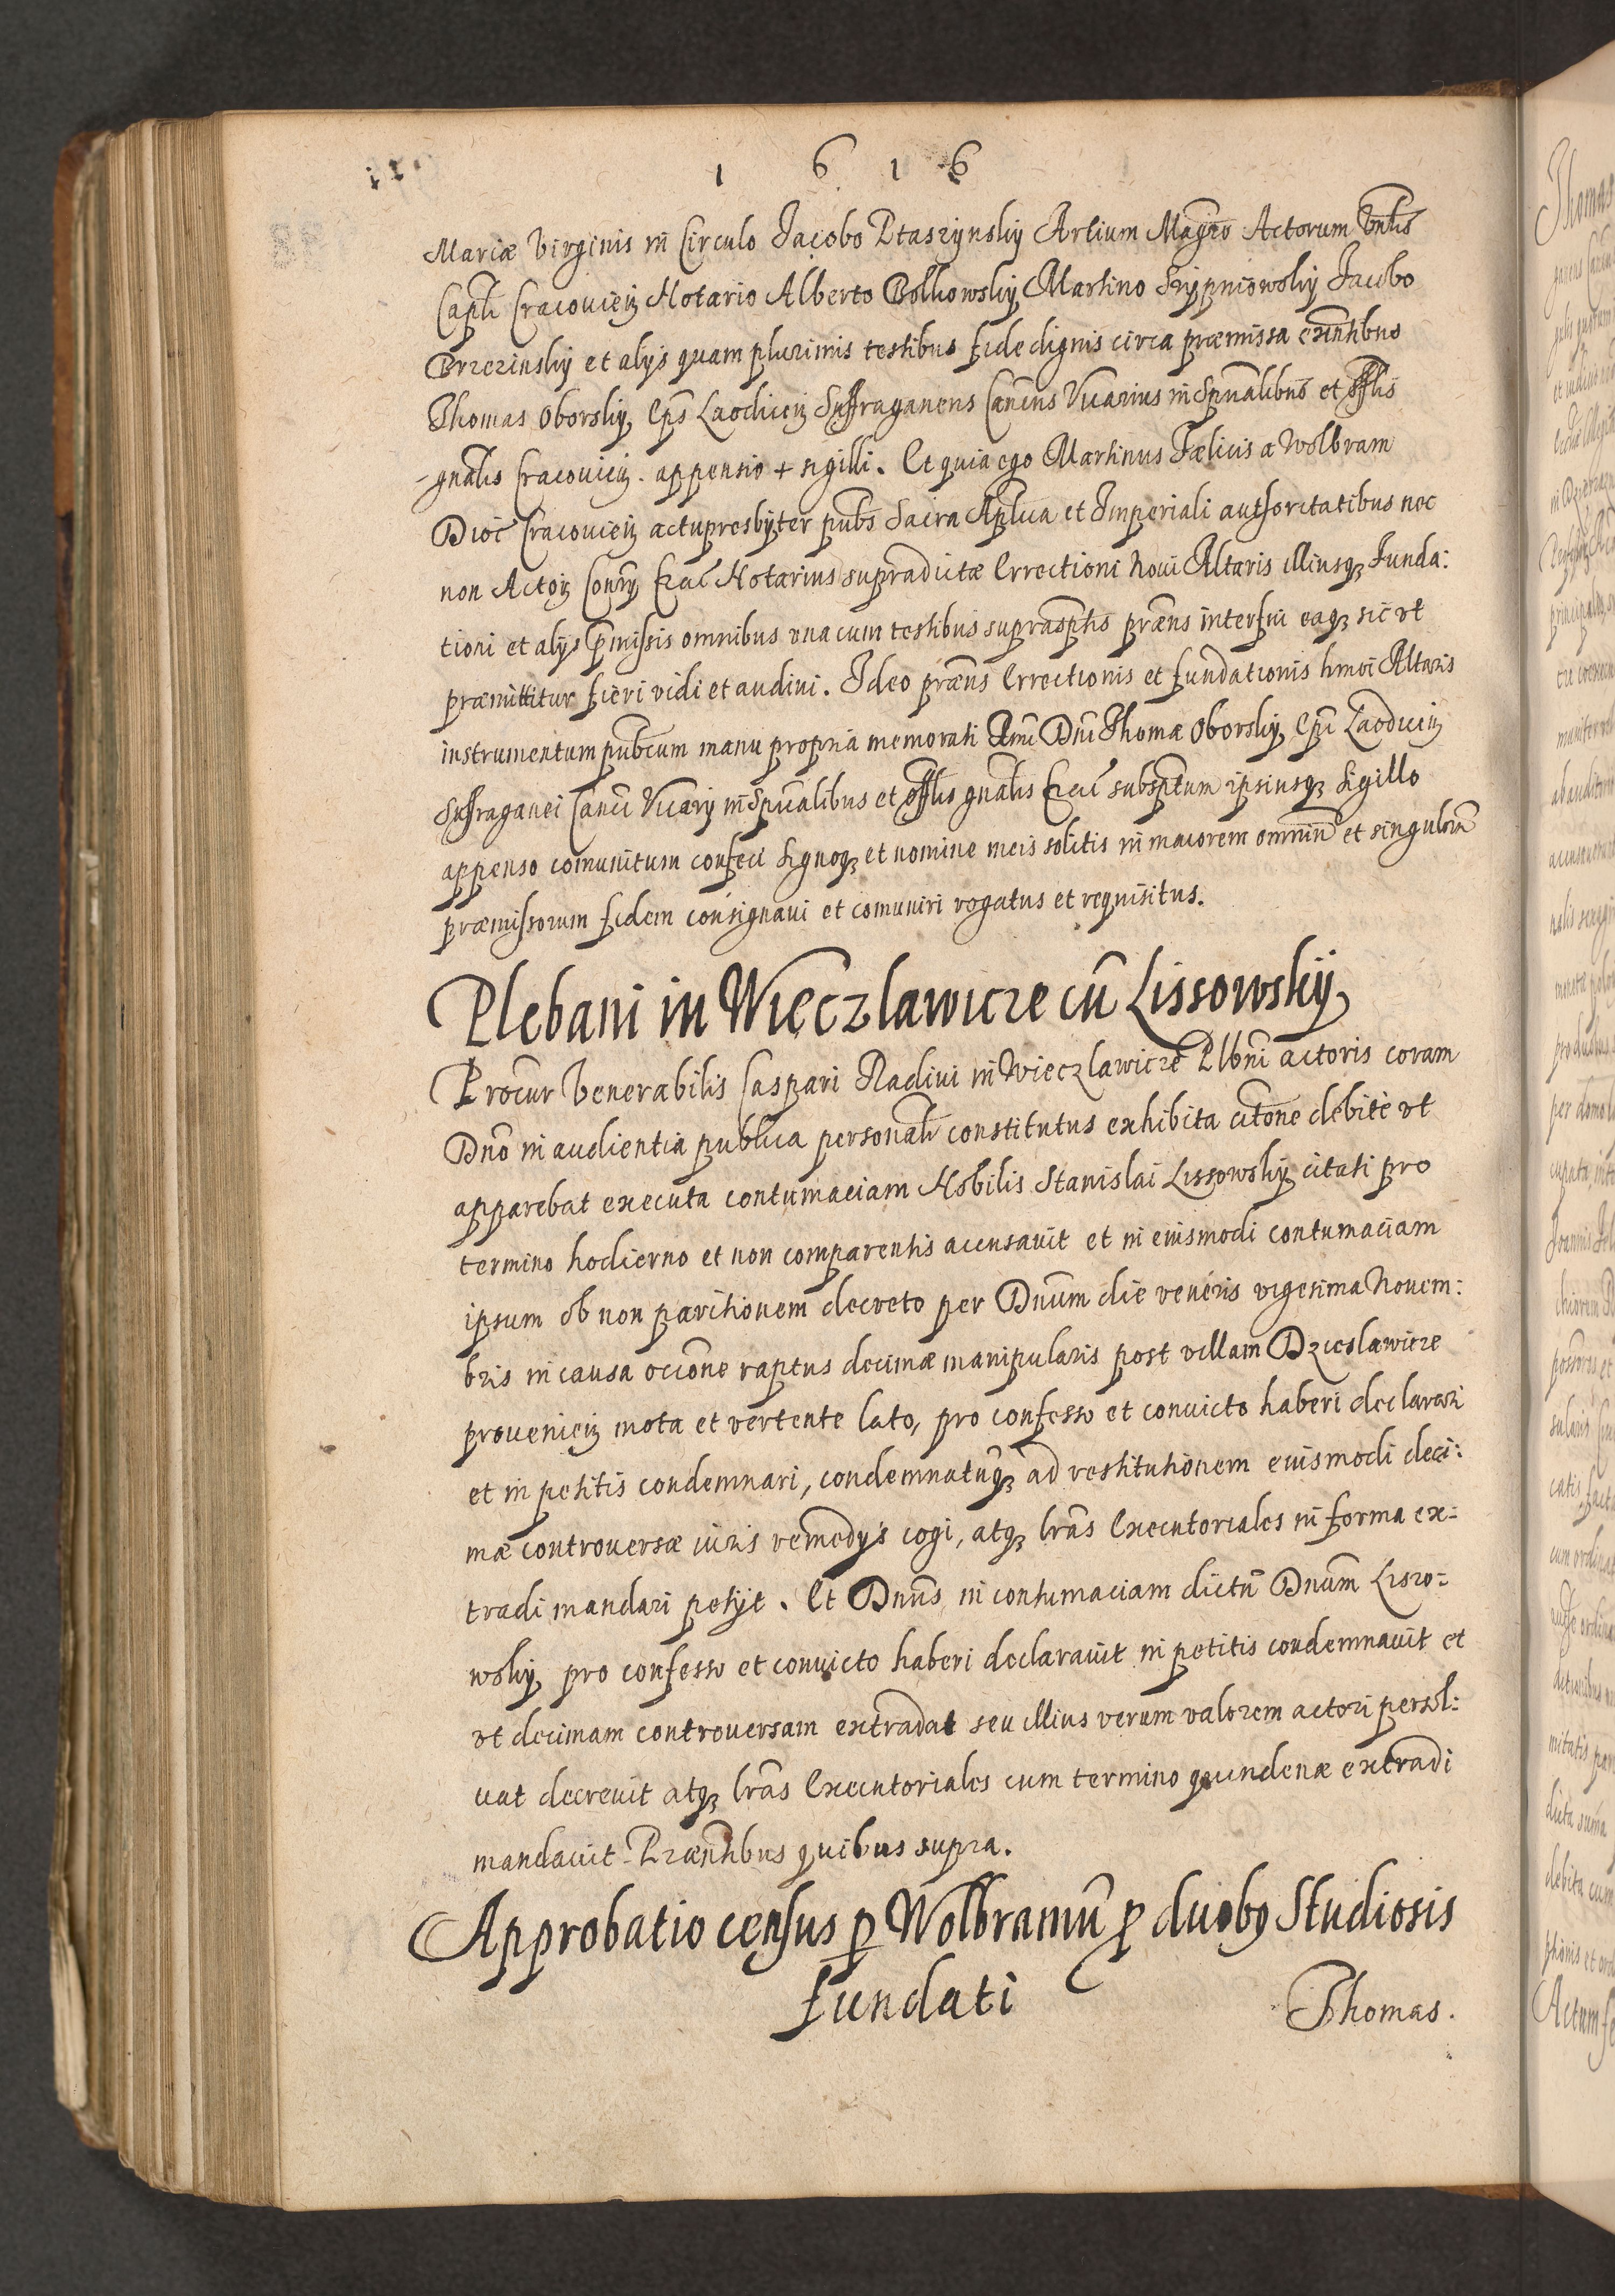 1616
Mariæ Virginis in Circulo Jacobo Ptaszynsky Artium Magrō Actorum Vnlis
Capli Cracouien Notario Alberto Bolkowsky Martino Skrypniowsky Jacobo
Brzezinsky et alijs quam plurimis testibus fide dignis circa præmissa exnntibus
Thomas Oborsky Epūs Laodicien Suffraganeus Canēus Vicarius in Spūalibus et Offlis
gnālis Cracouien. appensio + sigilli. Et quia ego Martinus Fælicis a Wolbram
Dioc Cracouien actu presbyter pubs Sacra Aplica et Imperiali authoritatibus nec
non Actor Consry Crac Notarius supradictæ Errectioni noui Altaris illiusq Funda:
tioni et alijs pmissis omnibus vna cum testibus suprasptis præns interfui eaq sic vt
præmittitur fieri vidi et audiui. Ideo præns Errectionis et fundationis hmoi Altaris
instrumentum pubcum manu propria memorati Rmi Dni Thomæ Oborsky Epi Laodicien
Suffraganei Canci Vicarij in Spūalibus et Offlis gnālis Crac subsptum ipsiusq sigillo
appenso comunitum confeci signoq et nomine meis solitis in maiorem omniū et singulorū
præmissorum fidem consignaui et comuniri rogatus et requisitus.
Plebani in Wieczlawicze cū Lissowsky
Procur Venerabilis Caspari Radiui in Wieczlawicze Plbni actoris coram
Dno in audientia publica personalr constitutus exhibita citone debitè vt
apparebat executa contumaciam Nobilis Stanislai Lissowsky citati pro
termino hodierno et non comparentis accusauit et in eiusmodi contumaciam
ipsum ob non paritionem decreto per Dnum die veneris vigesima Nouem:
bris in causa ocione raptus decimæ manipularis post villam Dzieslawicze
prouenien mota et vertente lato, pro confesso et conuicto haberi declarari
et in petitis condemnari, condemnatūq ad restitutionem eiusmodi deci:
mæ controuersæ iuris remedijs cogi, atq lras Executoriales in forma ex:
tradi mandari petijt. Et Dnus in contumaciam dictū Dnum Lisso:
wsky pro confesso et conuicto haberi declarauit in petitis condemnauit et
vt decimam controuersam extradat seu illius verum valorem actori persol:
uat decreuit atq lras Executoriales cum termino quindenæ extradi
mandauit Præntibus quibus supra.
Approbatio census p Wolbramū p duobq Studiosis
fundati
Thomas.